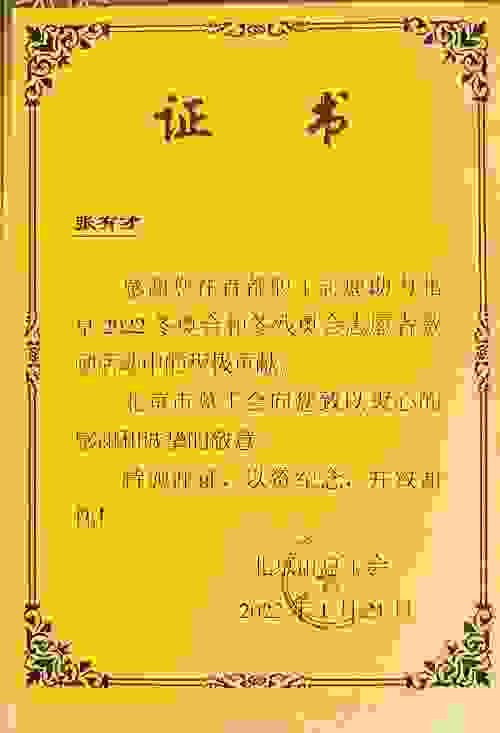 证 书
张有才
感谢您在首都职工志愿助力北
京2022冬奥会和冬残奥会志愿者激
励活动中的积极贡献。
北京市总工会向您致以衷心的
感谢和诚挚的敬意。
特颁此证,以资纪念,并致谢
忱!
北京市总工会
2022年1月21日